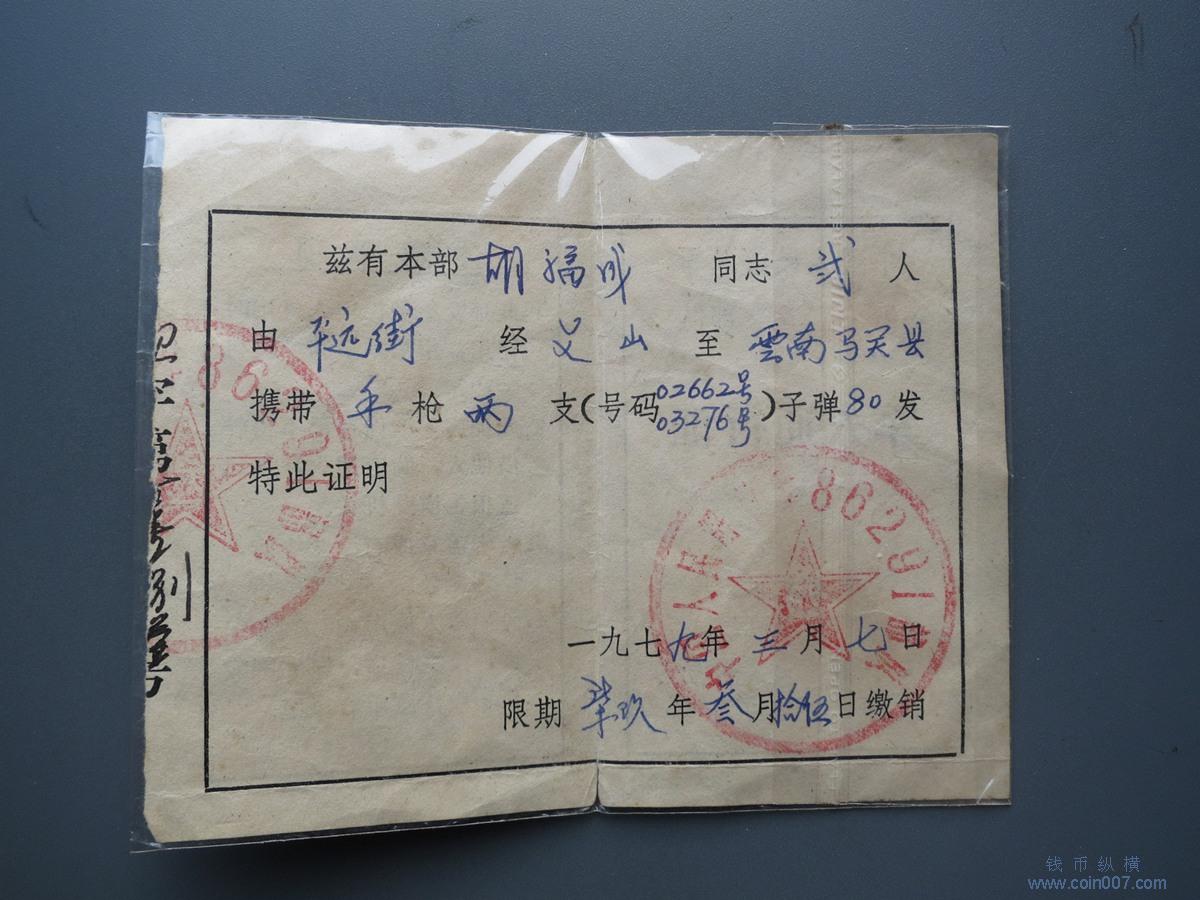 兹有本部胡福成同志弍人
由平远街经文山至雲南马关县
携带手枪两支(号码02662号 03276号)子弹80发
特此证明
一九七九年三月七日
限期柒玖年叁月拾伍日缴销
86291
钱币纵横
www.coin007.com